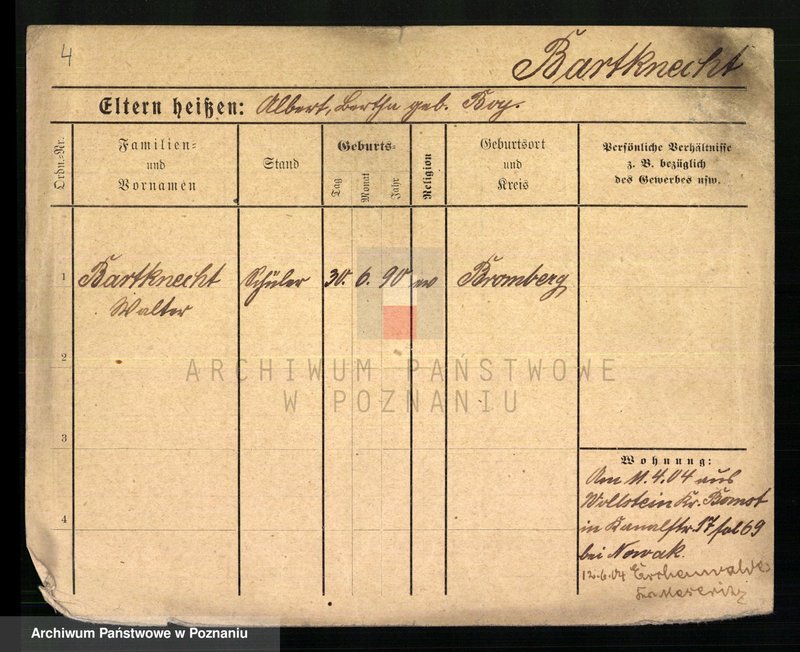 4
Bartknecht
Eltern heißen: Albert, Bertha geb. Boy.
Ordn.-Nr.
Familien-
und
Vornamen
Stand
Geburts-
Tag
Monat
Jahr
Religion
Geburtsort
und
Kreis
Persönliche Verhältnisse
z. B. bezüglich
des Gewerbes usw.
1 Bartknecht Schüler 30. 6. 90 ev Bromberg
Walter
2
ARCHIWUM PAŃSTWOWE
W POZNANIU
3
Wohnung:
Am 11.4.04 aus
Wollstein Kr. Bomst
4
in Kanalstr. 17 fol 69
bei Nowak.
12.6.04
Meseritz
Archiwum Państwowe w Poznaniu